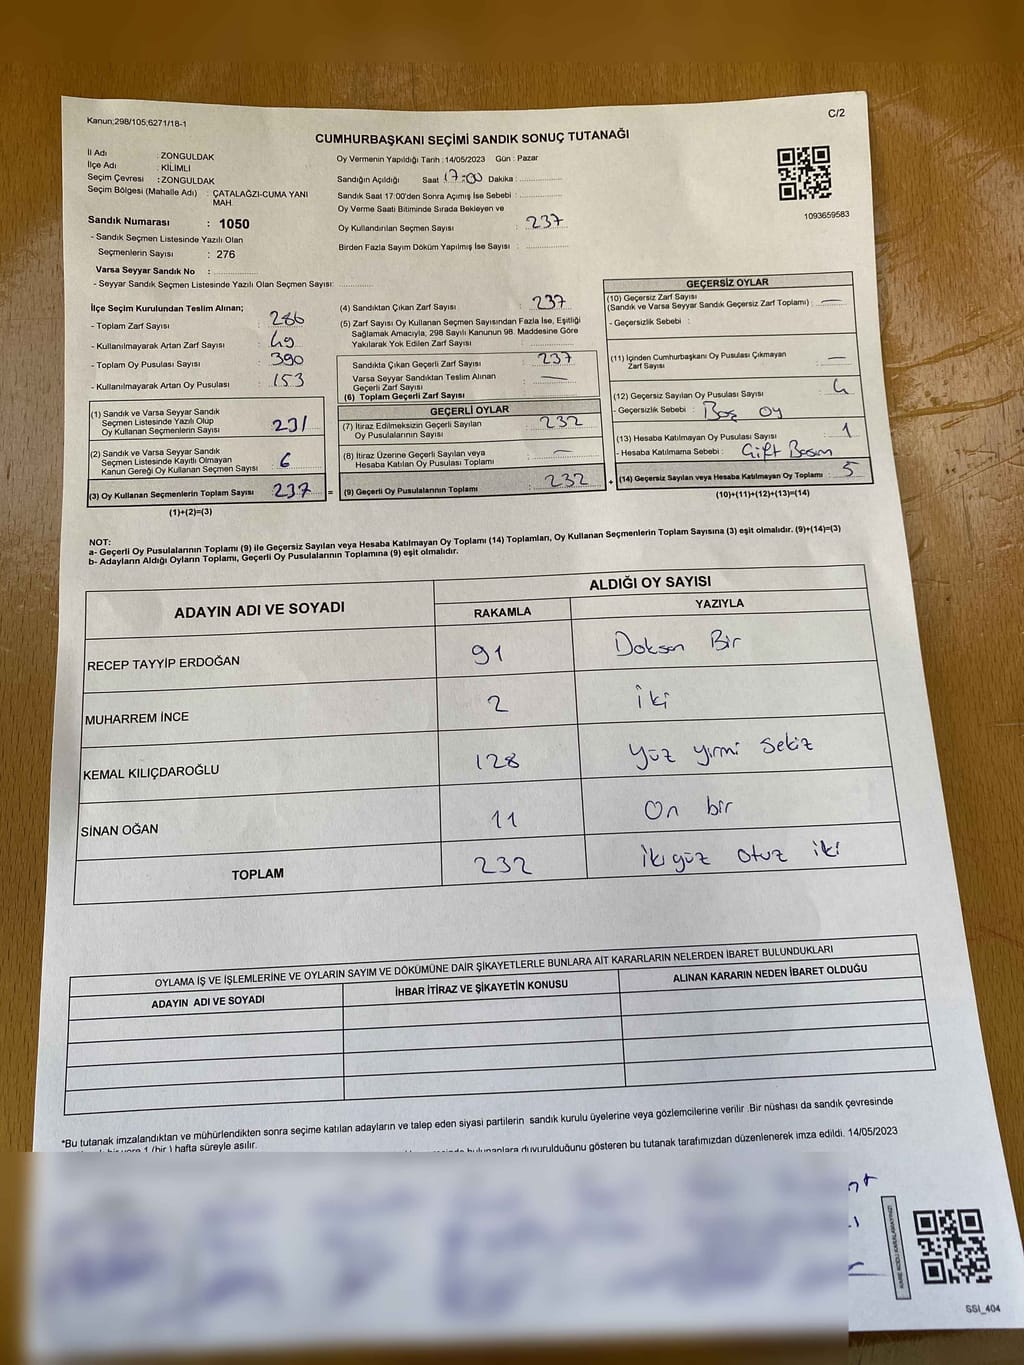 Kanun;298/105;6271/18-1
C/2
CUMHURBAŞKANI SEÇİMİ SANDIK SONUÇ TUTANAĞI
İl Adı : ZONGULDAK
İlçe Adı : KİLİMLİ
Seçim Çevresi : ZONGULDAK
Seçim Bölgesi (Mahalle Adı) : ÇATALAĞZI-CUMA YANI MAH.
Sandık Numarası : 1050
- Sandık Seçmen Listesinde Yazılı Olan
Seçmenlerin Sayısı : 276
Varsa Seyyar Sandık No : ..............
- Seyyar Sandık Seçmen Listesinde Yazılı Olan Seçmen Sayısı: ..............
Oy Vermenin Yapıldığı Tarih : 14/05/2023 Gün : Pazar
Sandığın Açıldığı Saat 17:00 Dakika : ..............
Sandık Saat 17:00'den Sonra Açımış İse Sebebi : ..............
Oy Verme Saati Bitiminde Sırada Bekleyen ve
Oy Kullandırılan Seçmen Sayısı : 237
Birden Fazla Sayım Döküm Yapılmış İse Sayısı : ..............
1093659583
İlçe Seçim Kurulundan Teslim Alınan;
- Toplam Zarf Sayısı : 286
- Kullanılmayarak Artan Zarf Sayısı : 49
- Toplam Oy Pusulası Sayısı : 390
- Kullanılmayarak Artan Oy Pusulası : 153
(1) Sandık ve Varsa Seyyar Sandık
Seçmen Listesinde Yazılı Olup
Oy Kullanan Seçmenlerin Sayısı 231
(2) Sandık ve Varsa Seyyar Sandık
Seçmen Listesinde Kayıtlı Olmayan
Kanun Gereği Oy Kullanan Seçmen Sayısı : 6
(3) Oy Kullanan Seçmenlerin Toplam Sayısı : 237 =
(1)+(2)=(3)
(4) Sandıktan Çıkan Zarf Sayısı : 237
(5) Zarf Sayısı Oy Kullanan Seçmen Sayısından Fazla İse, Eşitliği
Sağlamak Amacıyla, 298 Sayılı Kanunun 98. Maddesine Göre
Yakılarak Yok Edilen Zarf Sayısı : ..............
Sandıkta Çıkan Geçerli Zarf Sayısı : 237
Varsa Seyyar Sandıktan Teslim Alınan
Geçerli Zarf Sayısı : —
(6) Toplam Geçerli Zarf Sayısı :
GEÇERLİ OYLAR
(7) İtiraz Edilmeksizin Geçerli Sayılan
Oy Pusulalarının Sayısı : 232
(8) İtiraz Üzerine Geçerli Sayılan veya
Hesaba Katılan Oy Pusulası Toplamı : —
(9) Geçerli Oy Pusulalarının Toplamı : 232 +
GEÇERSİZ OYLAR
(10) Geçersiz Zarf Sayısı
(Sandık ve Varsa Seyyar Sandık Geçersiz Zarf Toplamı) : —
- Geçersizlik Sebebi :
(11) İçinden Cumhurbaşkanı Oy Pusulası Çıkmayan
Zarf Sayısı : —
(12) Geçersiz Sayılan Oy Pusulası Sayısı : 4
- Geçersizlik Sebebi : Boş oy
(13) Hesaba Katılmayan Oy Pusulası Sayısı : 1
- Hesaba Katılmama Sebebi : Çift Basım
(14) Geçersiz Sayılan veya Hesaba Katılmayan Oy Toplamı : 5
(10)+(11)+(12)+(13)=(14)
NOT:
a- Geçerli Oy Pusulalarının Toplamı (9) ile Geçersiz Sayılan veya Hesaba Katılmayan Oy Toplamı (14) Toplamları, Oy Kullanan Seçmenlerin Toplam Sayısına (3) eşit olmalıdır. (9)+(14)=(3)
b- Adayların Aldığı Oyların Toplamı, Geçerli Oy Pusulalarının Toplamına (9) eşit olmalıdır.
ADAYIN ADI VE SOYADI ALDIĞI OY SAYISI
RAKAMLA YAZIYLA
RECEP TAYYİP ERDOĞAN 91 Doksan Bir
MUHARREM İNCE 2 iki
KEMAL KILIÇDAROĞLU 128 yüz yirmi sekiz
SİNAN OĞAN 11 On bir
TOPLAM 232 iki yüz otuz iki
OYLAMA İŞ VE İŞLEMLERİNE VE OYLARIN SAYIM VE DÖKÜMÜNE DAİR ŞİKAYETLERLE BUNLARA AİT KARARLARIN NELERDEN İBARET BULUNDUKLARI
ADAYIN ADI VE SOYADI İHBAR İTİRAZ VE ŞİKAYETİN KONUSU ALINAN KARARIN NEDEN İBARET OLDUĞU
*Bu tutanak imzalandıktan ve mühürlendikten sonra seçime katılan adayların ve talep eden siyasi partilerin sandık kurulu üyelerine veya gözlemcilerine verilir .Bir nüshası da sandık çevresinde
1 (bir ) hafta süreyle asılır.
duyurulduğunu gösteren bu tutanak tarafımızdan düzenlenerek imza edildi. 14/05/2023
KARE KODU KARALAMAYINIZ!
SSI_404